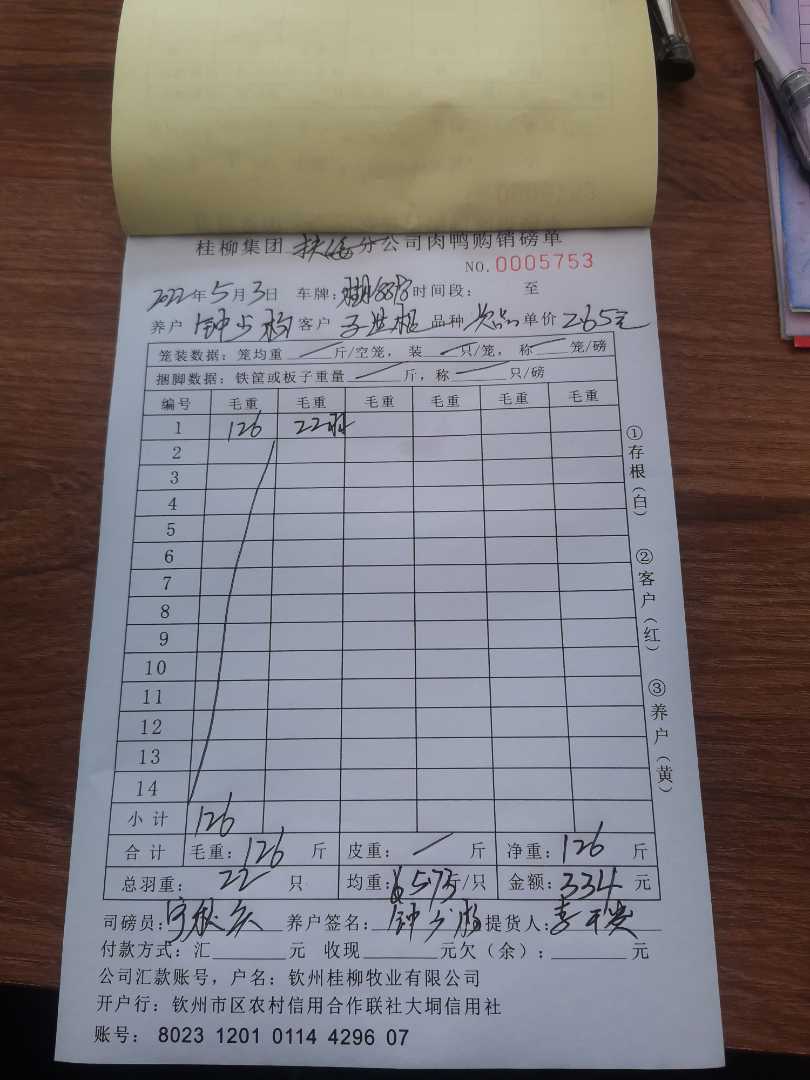 桂柳集团 扶绥 分公司肉鸭购销磅单
NO.0005753
2022年5月3日 车牌: 时间段: 至
养户 钟少 客户 品种 次品 单价 2.65元
笼装数据:笼均重 斤/空笼,装 只/笼,称 笼/磅
捆脚数据:铁筐或板子重量 斤,称 只/磅
编号 毛重 毛重 毛重 毛重 毛重 毛重
1 126 22羽
2
3
4
5
6
7
8
9
10
11
12
13
14
小计 126
合计 毛重:126 斤 皮重: 斤 净重:126 斤
总羽重:22 只 均重:573斤/只 金额:334 元
司磅员: 养户签名:钟少 提货人:李
付款方式:汇 元 收现 元欠(余): 元
公司汇款账号,户名:钦州桂柳牧业有限公司
开户行:钦州市区农村信用合作联社大垌信用社
账号: 8023 1201 0114 4296 07
①存根(白) ②客户(红) ③养户(黄)